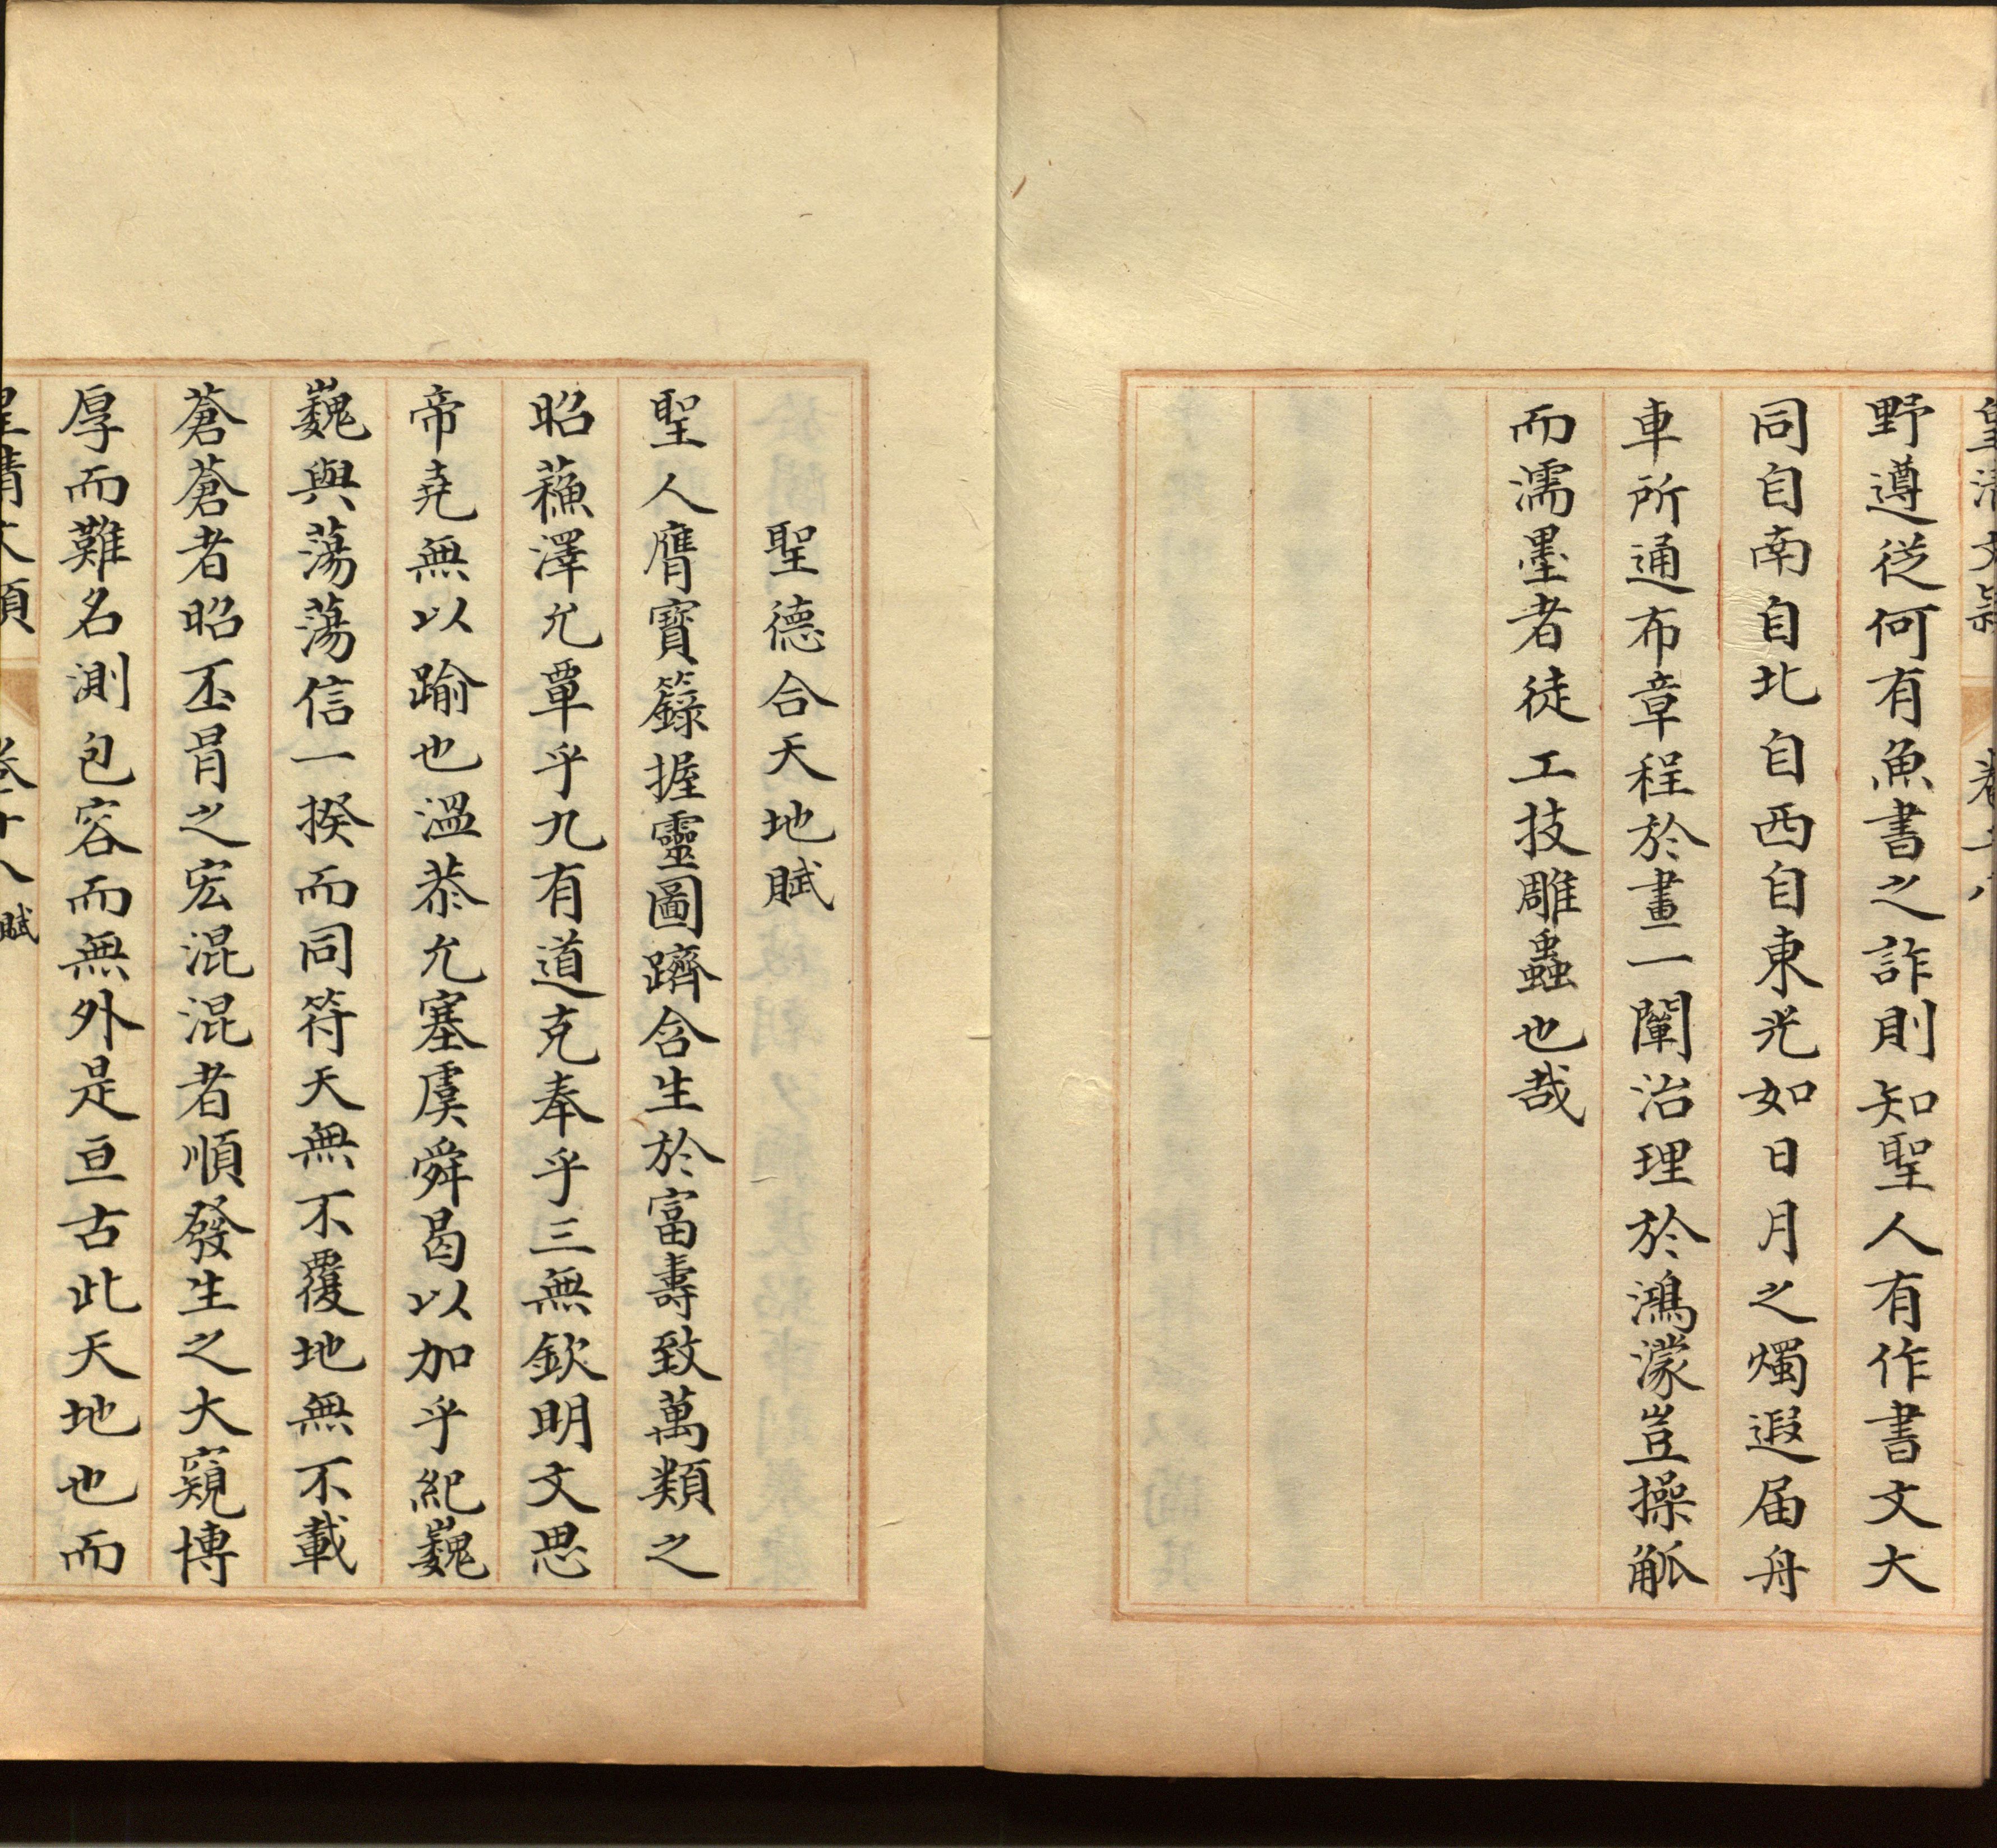 皇清文穎 卷十八
野遵從何有魚書之詐則知聖人有作書文大
同自南自北自西自東光如日月之燭遐届舟
車所通布章程於畫一闡治理於鴻濛豈操觚
而濡墨者徒工技雕蟲也哉
聖德合天地賦
聖人膺寶籙握靈圖躋含生於富壽致萬類之
昭蘓澤允覃乎九有道克奉乎三無欽明文思
帝堯無以踰也溫恭允塞虞舜曷以加乎紀巍
巍與蕩蕩信一揆而同符天無不覆地無不載
蒼蒼者昭丕冒之宏混混者順發生之大窺博
厚而難名測包容而無外是亘古此天地也而
皇清文穎 卷十八 賦